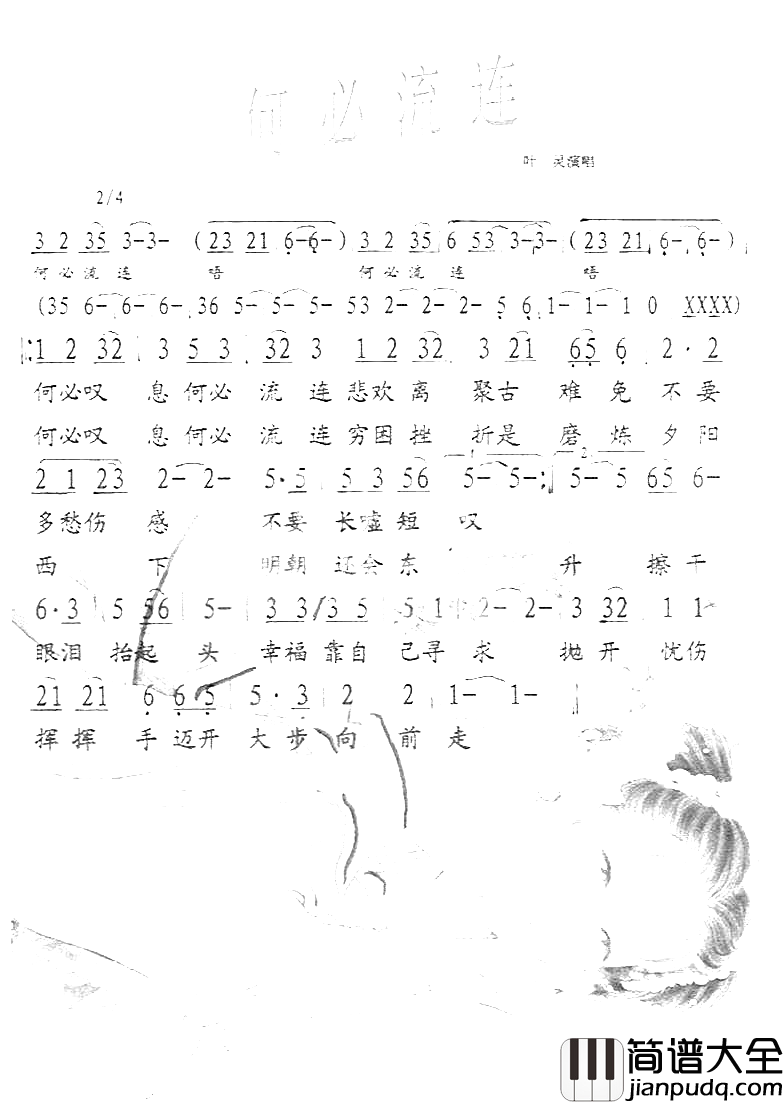 何必流连
叶 灵演唱
2/4
3 2 35 3-3- (23 21 6-6-) 3 2 35 6 53 3-3- (23 21 6-6-)
何必流连 唔 何必流连 唔
(35 6- 6- 6- 36 5- 5- 5- 53 2- 2- 2- 5 6 1- 1- 1 0 XXXX)
1 2 32 3 5 3 32 3 1 2 32 3 21 65 6 2· 2
何必叹 息何必 流 连悲欢离 聚古 难 免 不 要
何必叹 息何必 流 连穷困挫 折是 磨 炼 夕 阳
2 1 23 2- 2- 5·5 5 3 56 5- 5- 5- 5 65 6-
1 2
多愁伤 感 不要 长嘘短 叹
西 下 明朝 还会东 升 擦干
6·3 5 56 5- 3 3 3 5 5 1 2- 2- 3 32 1 1
眼泪 抬起 头 幸福靠自 己寻 求 抛 开 忧伤
21 21 6 6 5 5· 3 2 2 1- 1-
挥挥 手迈开 大 步 向 前 走
简谱大全
jianpudq.com